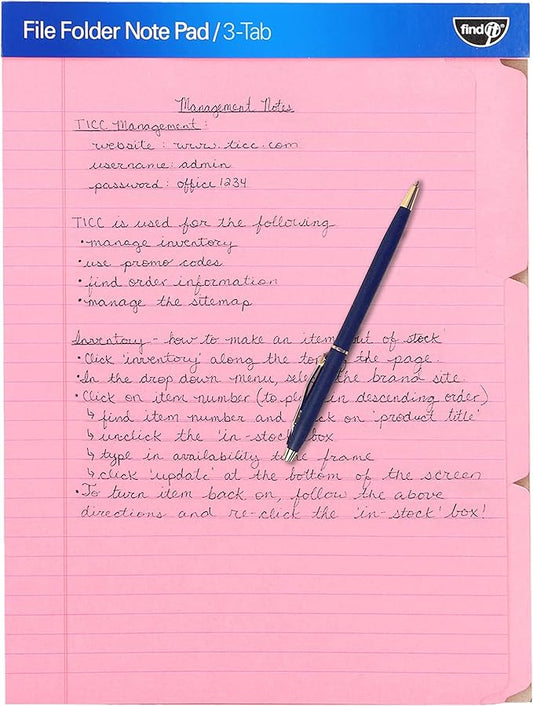 File Folder Note Pad / 3-Tab
find it®
Management Notes
TICC Management:
website: www.ticc.com
username: admin
password: office1234
TICC is used for the following
• manage inventory
• use promo codes
• find order information
• manage the sitemap
Inventory - how to make an item out of stock
• Click 'inventory' along the top the page.
• In the drop down menu, select the brand site.
• Click on item number (to in descending order)
↳ find item number and click on 'product title'
↳ unclick the 'in-stock' box
↳ type in availability time frame
↳ click 'update' at the bottom of the screen
• To turn item back on, follow the above
directions and re-click the 'in-stock' box!